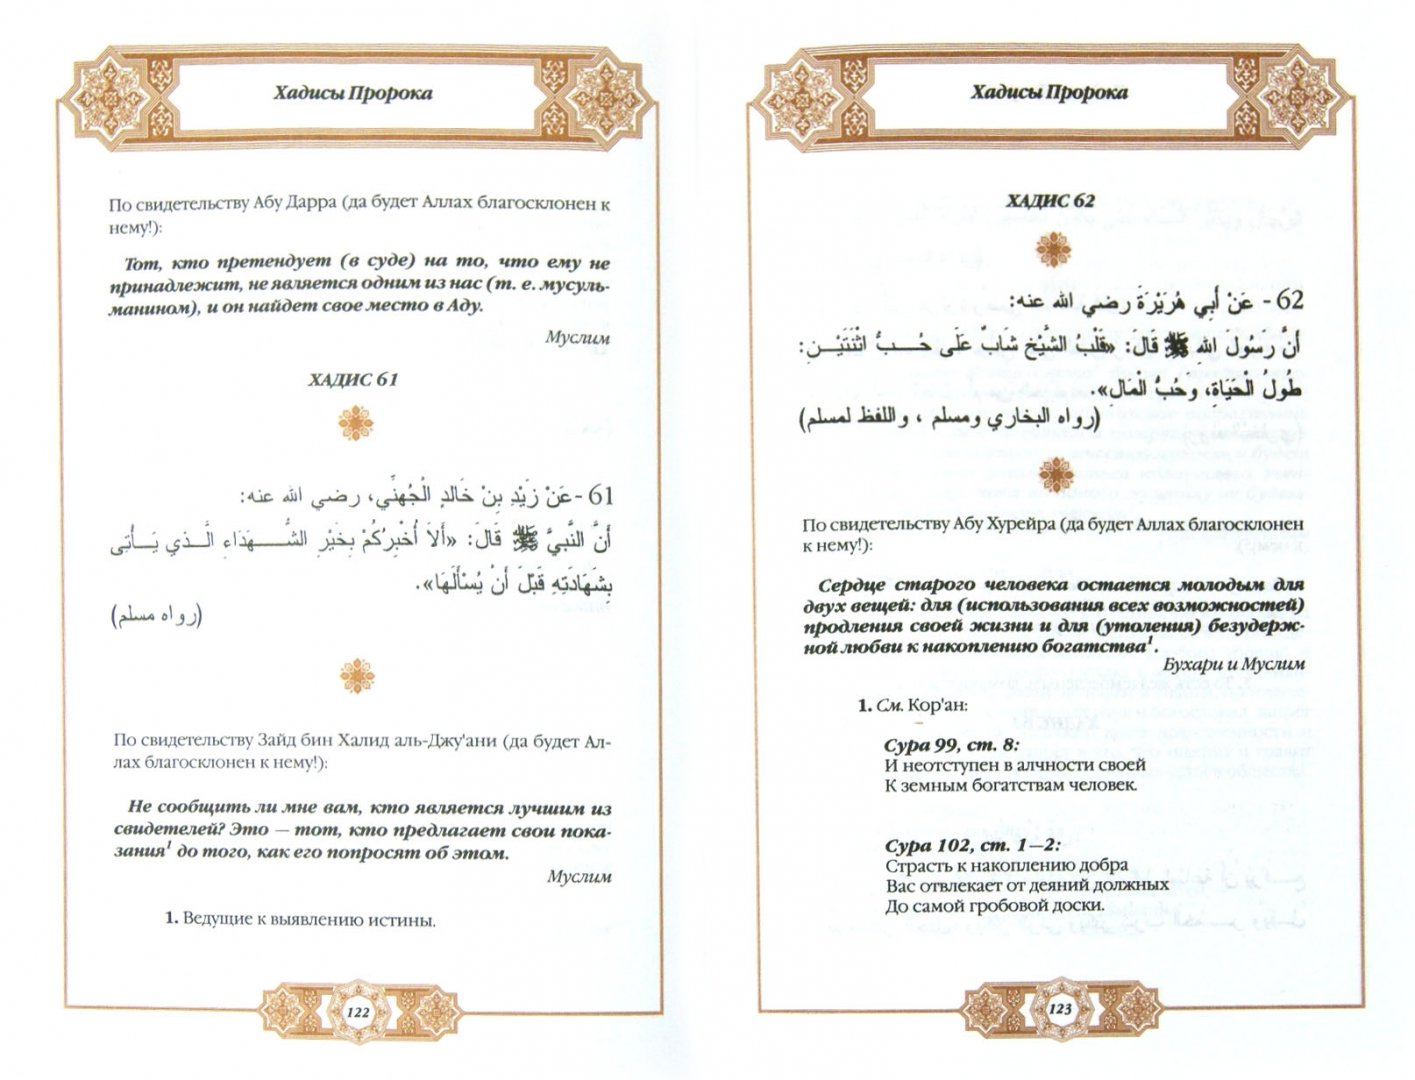 Хадисы Пророка
По свидетельству Абу Дарра (да будет Аллах благосклонен к
нему!):
Тот, кто претендует (в суде) на то, что ему не
принадлежит, не является одним из нас (т. е. мусуль-
манином), и он найдет свое место в Аду.
Муслим
ХАДИС 61
61- عَنْ زَيْدِ بِنْ خَالدٍ الْجُهنِّي، رضي الله عنه:
أَنَّ النَّبِيَّ ﷺ قَالَ: «أَلاَ أُخْبِرُكُمْ بِخَيْرِ الشُّهَدَاءِ الَّذي يَأتى
بِشَهَادَتِهِ قَبْلَ أنْ يُسْأَلَهَا».
(رواه مسلم)
По свидетельству Зайд бин Халид аль-Джу'ани (да будет Ал-
лах благосклонен к нему!):
Не сообщить ли мне вам, кто является лучшим из
свидетелей? Это — тот, кто предлагает свои пока-
зания¹ до того, как его попросят об этом.
Муслим
1. Ведущие к выявлению истины.
122
Хадисы Пророка
ХАДИС 62
62- عَنْ أَبِي هُرَيْرَةَ رضي الله عنه:
أَنَّ رَسُولَ اللهِ ﷺ قَالَ: «قَلْبُ الشَّيْخِ شَابٌ عَلَى حُبُّ اثْنَتَيْنِ:
طُولُ الْحَيَاةِ، وحُبُّ الْمَالِ».
(رواه البخاري ومسلم ، واللفظ لمسلم)
По свидетельству Абу Хурейра (да будет Аллах благосклонен
к нему!):
Сердце старого человека остается молодым для
двух вещей: для (использования всех возможностей)
продления своей жизни и для (утоления) безудерж-
ной любви к накоплению богатства¹.
Бухари и Муслим
1. См. Кор'ан:
Сура 99, ст. 8:
И неотступен в алчности своей
К земным богатствам человек.
Сура 102, ст. 1—2:
Страсть к накоплению добра
Вас отвлекает от деяний должных
До самой гробовой доски.
123